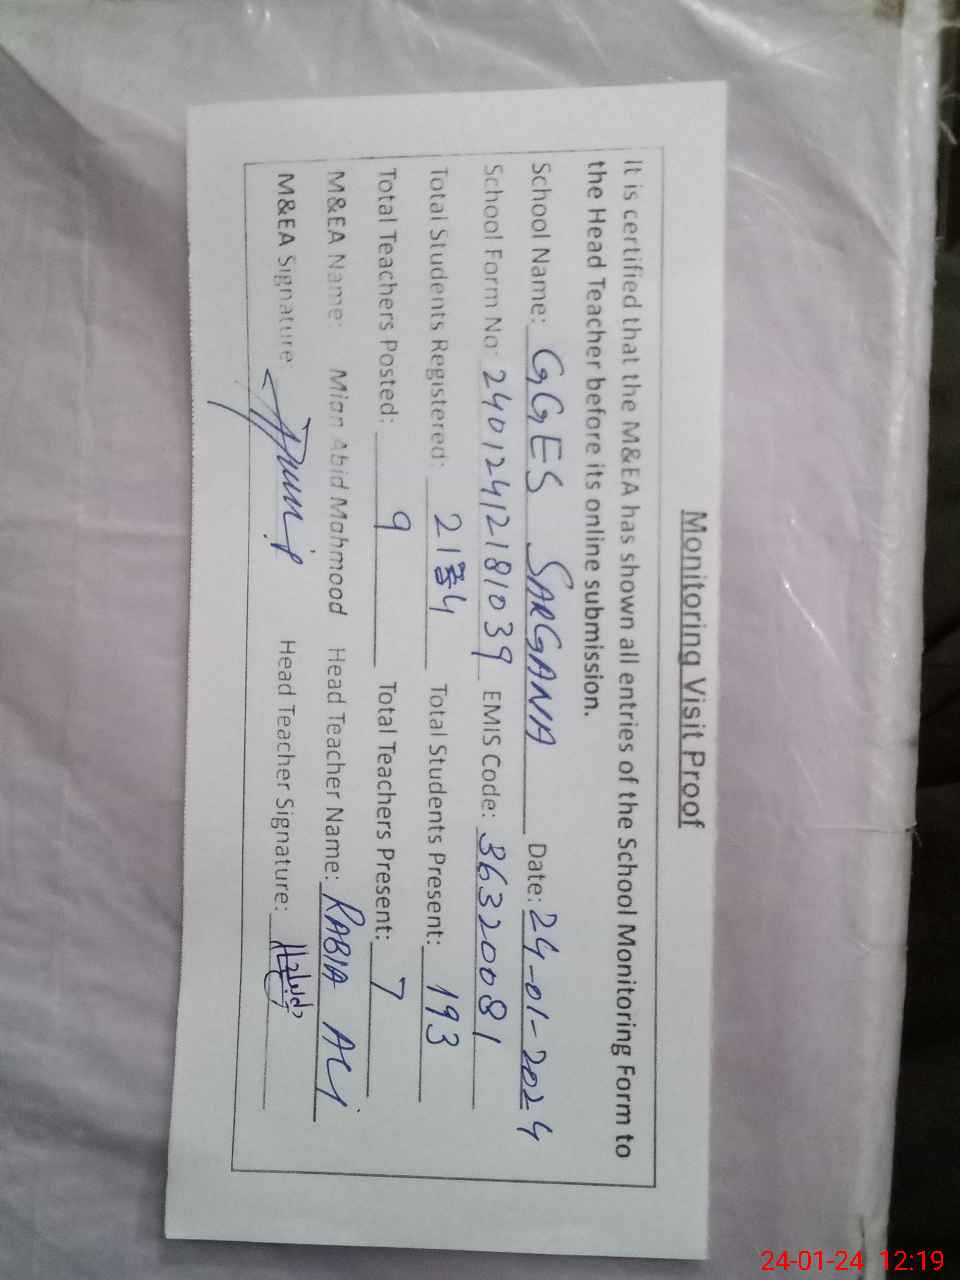 Monitoring Visit Proof
It is certified that the M&EA has shown all entries of the School Monitoring Form to
the Head Teacher before its online submission.
School Name: GGES SARGANA Date: 24-01-2024
School Form No: 24012412181039 EMIS Code: 36320081
Total Students Registered: 214 Total Students Present: 193
Total Teachers Posted: 9 Total Teachers Present: 7
M&EA Name: Mian Abid Mahmood Head Teacher Name: RABIA ALI
M&EA Signature: Head Teacher Signature:
24-01-24 12:19